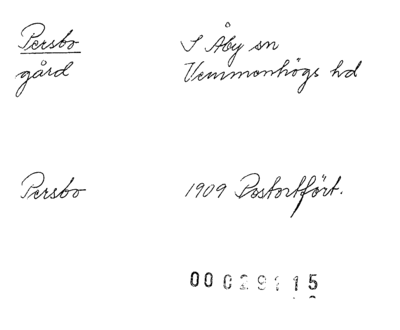 Persbo S Åby sn
gård Vemmenhögs hd
Persbo 1909 Postortfört.
00029115